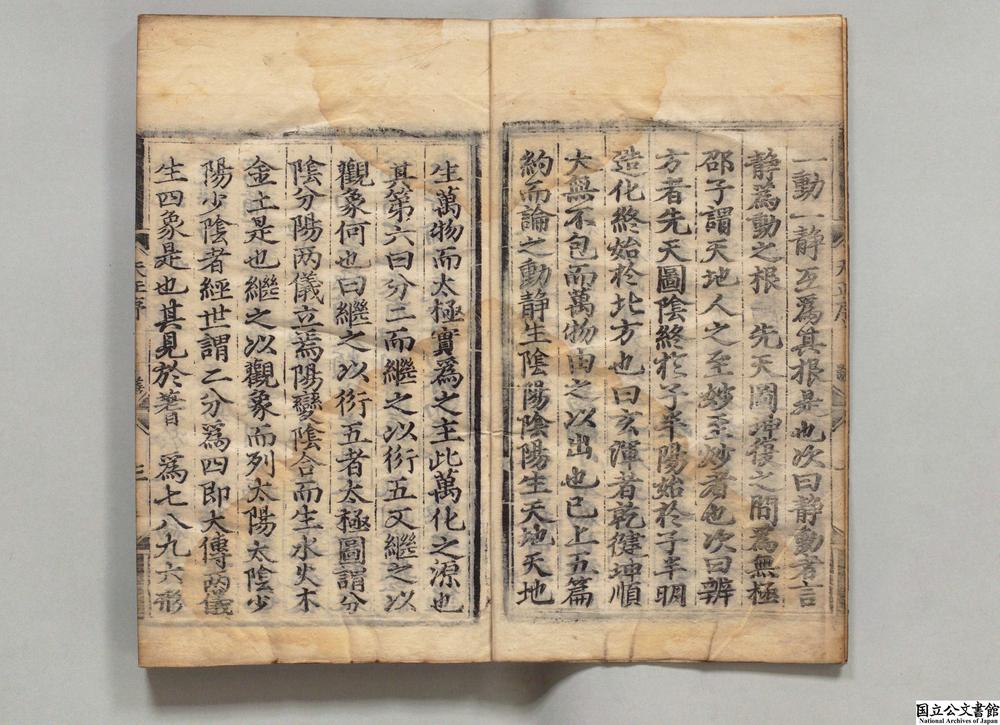 一動一静互爲其根是也次曰静動者言
静爲動之根 先天圖坤復之間爲無極
邵子謂天地人之至妙至妙者也次曰辨
方者先天圖陰終於子半陽始於子半明
造化終始於北方也曰玄渾者乾健坤順
大無不包而萬物由之以出也已上五篇
約而論之動静生陰陽陰陽生天地天地
生萬物而太極實爲之主此萬化之源也
其第六曰分二而繼之以衍五又繼之以
觀象何也曰繼之以衍五者太極圖謂分
陰分陽两儀立焉陽變陰合而生水火木
金土是也繼之以觀象而列太陽太陰少
陽少陰者經世謂二分爲四即大傳两儀
生四象是也其見於蓍 爲七八九六形
国立公文書館
National Archives of Japan